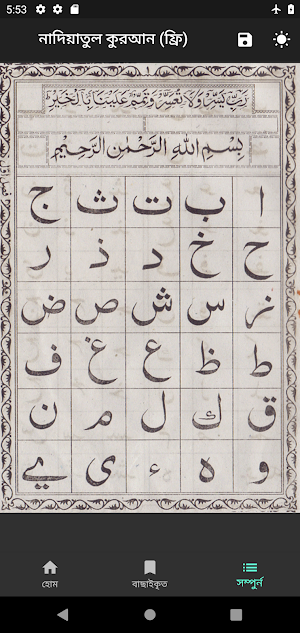 5:53
নাদিয়াতুল কুরআন (ফ্রি)
رَبِّ يَسِّرْ وَلَا تُعَسِّرْ وَتَمِّمْ عَلَيْنَا بِالْخَيْرِ
بِسْمِ اللهِ الرَّحْمٰنِ الرَّحِيْمِ
ا ب ت ث ج
ح خ د ذ ر
ز س ش ص ض
ط ظ ع غ ف
ق ك ل م ن
و ه ء ى ے
হোম বাছাইকৃত সম্পুর্ন